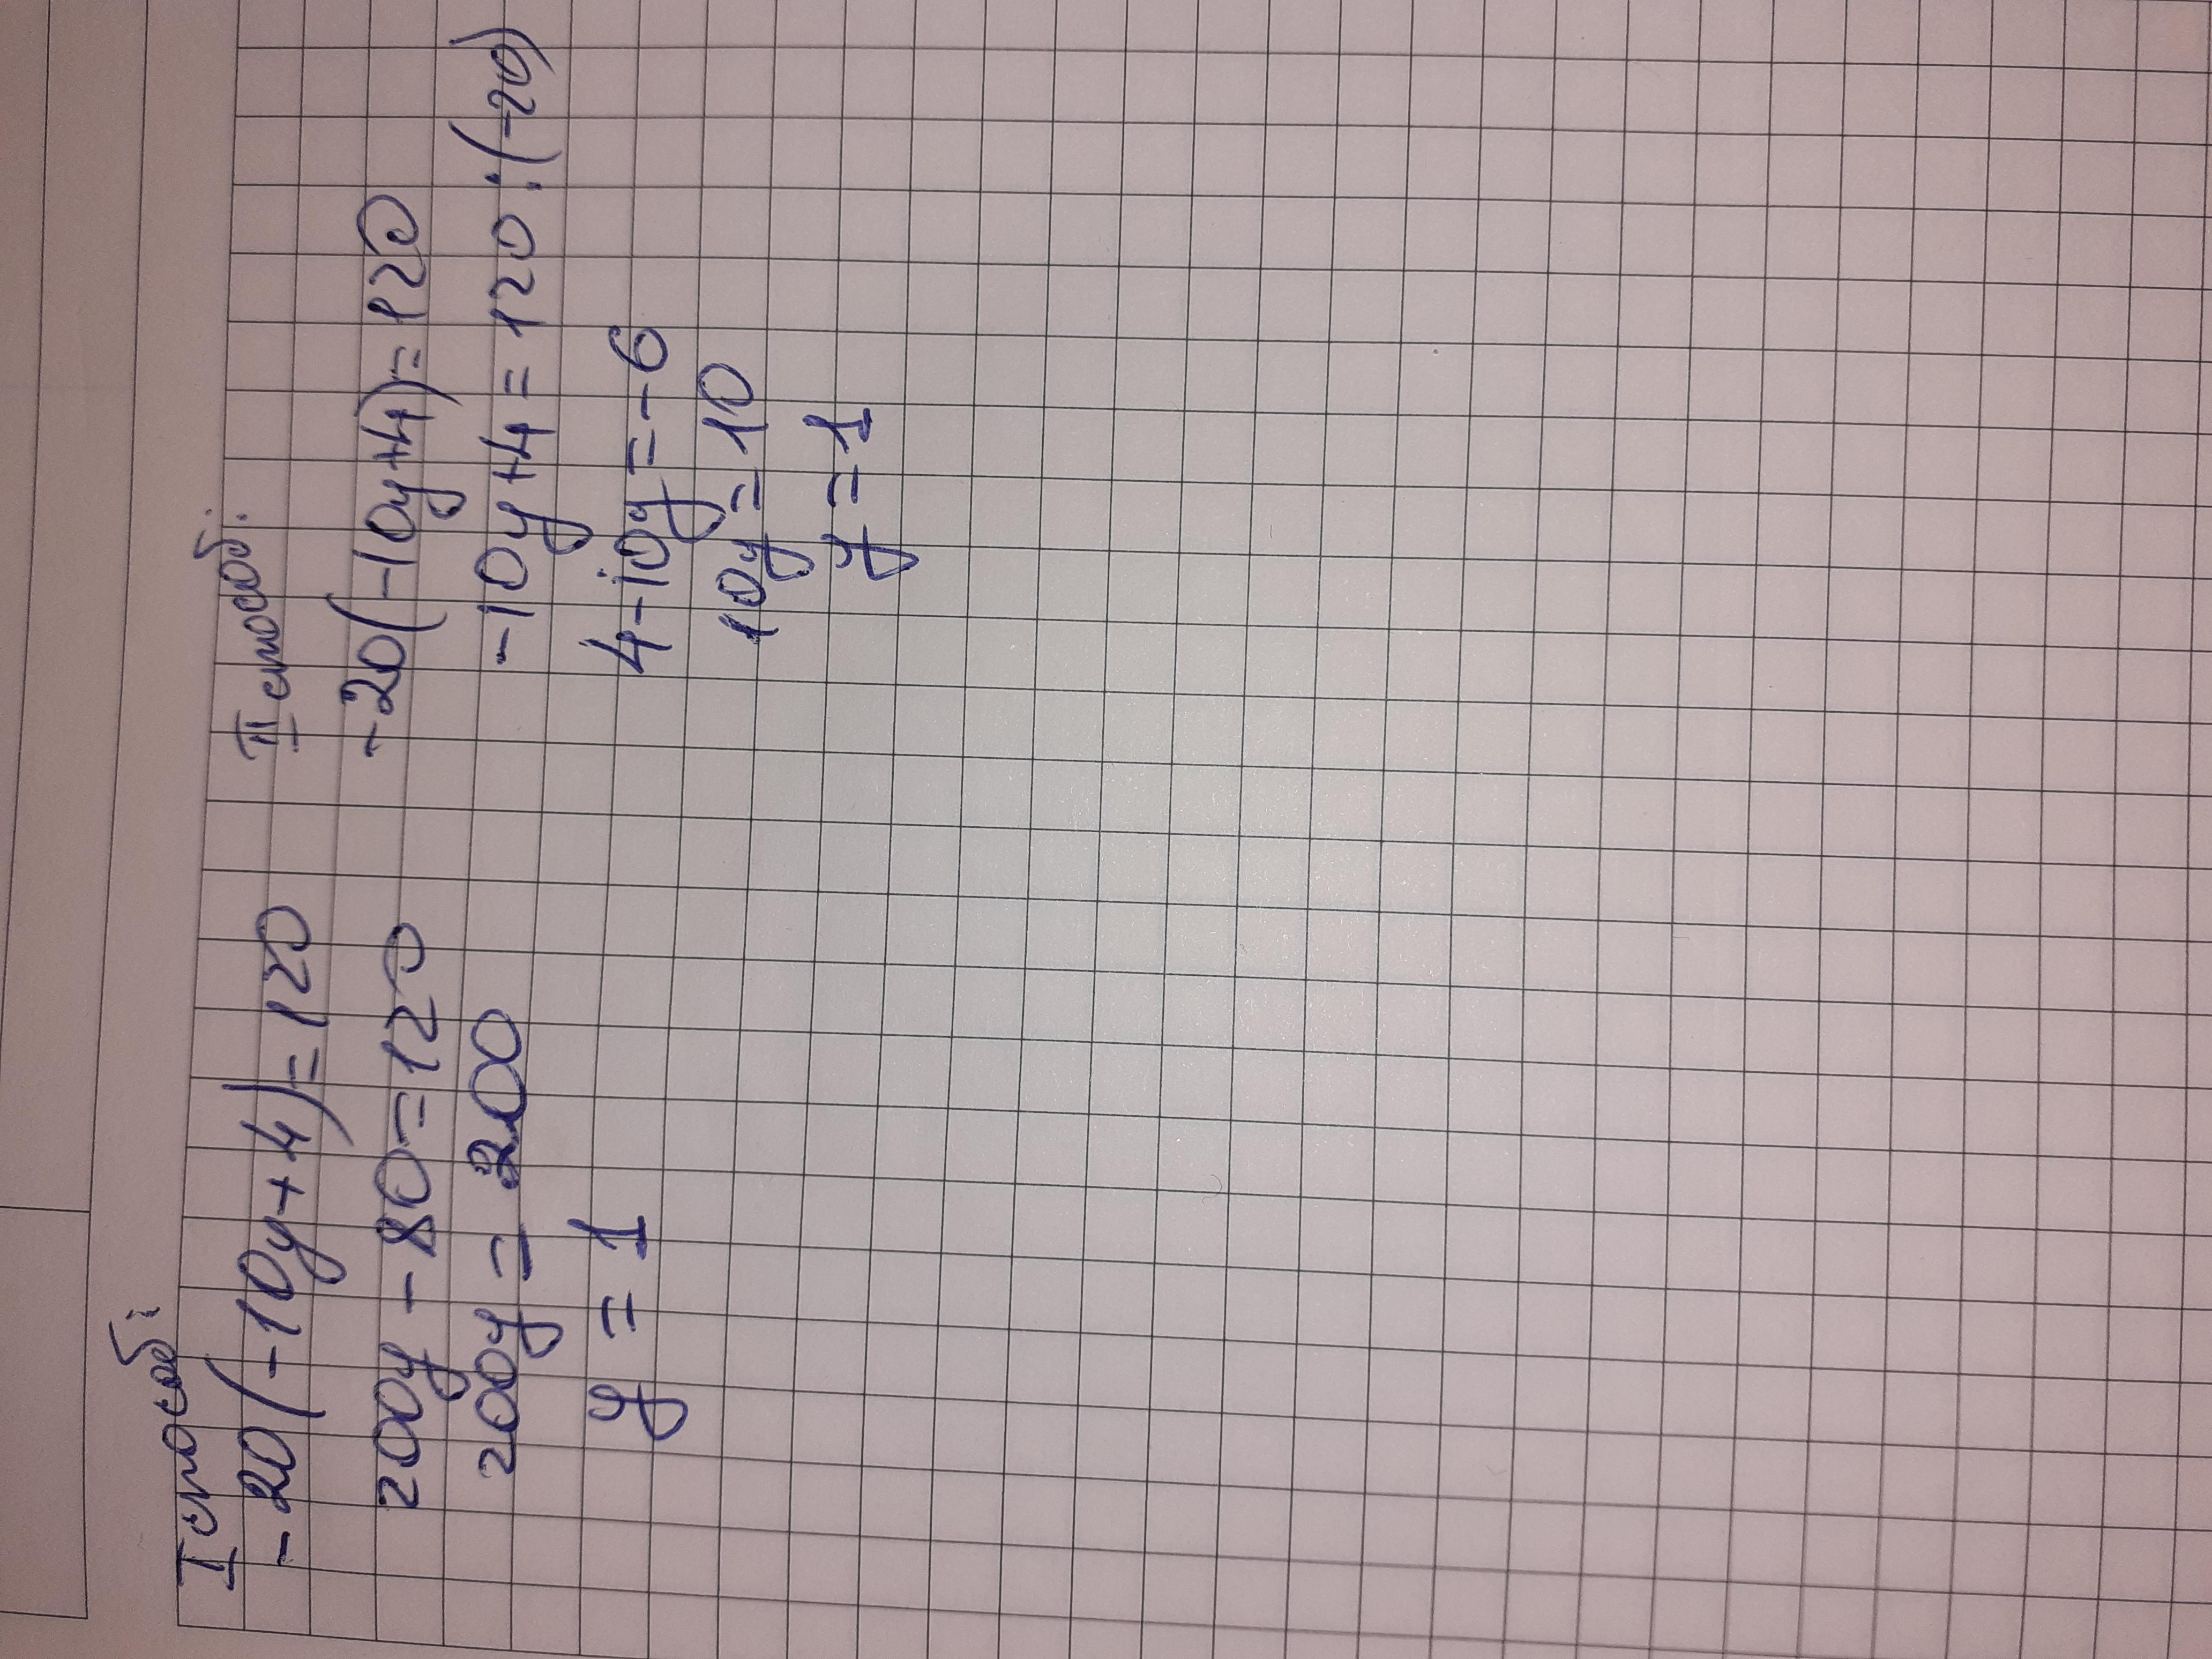 I способ:
-20(-10y+4)=120
200y-80=120
200y=200
y=1
II способ:
-20(-10y+4)=120
-10y+4=120:(-20)
4-10y=-6
10y=10
y=1